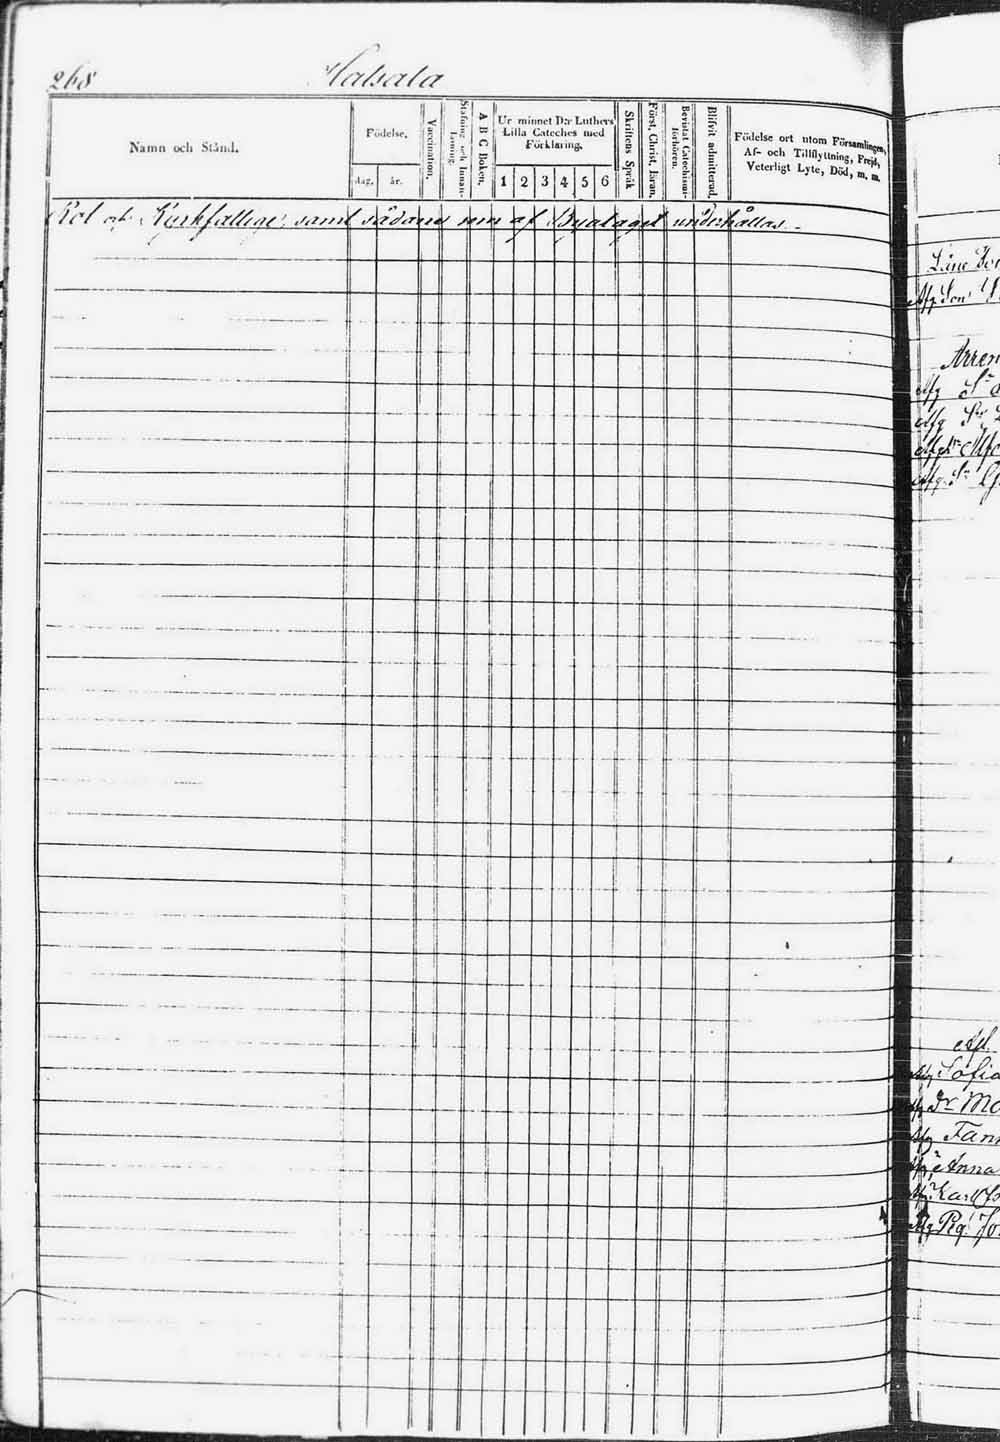 268 Halsala
Namn och Stånd.
Födelse,
dag. år.
Vaccination.
Stafning och Innan-
läsning.
A B C Boken.
Ur minnet D:r Luthers
Lilla Cateches med
Förklaring.
1 2 3 4 5 6
Skriftens Språk
Först. Christ. läran.
Bevistat Catechismi-
förhören.
Blifvit admitterad.
Födelse ort utom Församlingen,
Af- och Tillflyttning, Frejd,
Veterligt Lyte, Död, m. m.
Rot och Kyrkfattige, samt sådane som af Byalaget underhållas.
Arren
Sofia
Dr Ma
Fann
Anna
Pig. Jo